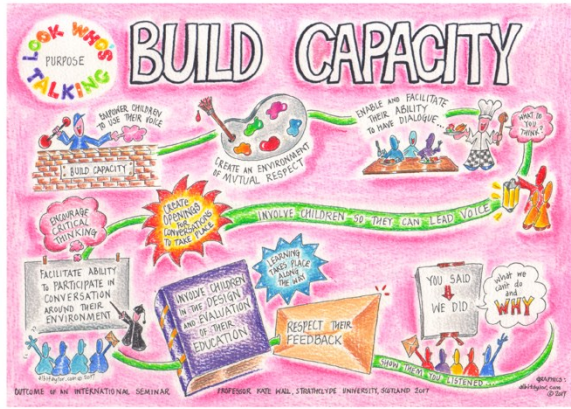 LOOK WHO'S TALKING
PURPOSE
BUILD CAPACITY
EMPOWER CHILDREN
TO USE THEIR VOICE
BUILD CAPACITY
CREATE AN ENVIRONMENT
OF MUTUAL RESPECT
ENABLE AND FACILITATE
THEIR ABILITY
TO HAVE DIALOGUE...
WHAT DO
YOU
THINK?
INVOLVE CHILDREN SO THEY CAN LEAD VOICE
CREATE
OPENINGS
FOR
CONVERSATIONS
TO TAKE PLACE
ENCOURAGE
CRITICAL
THINKING
FACILITATE ABILITY
TO PARTICIPATE IN
CONVERSATION
AROUND THEIR
ENVIRONMENT
INVOLVE CHILDREN
IN THE DESIGN
AND EVALUATION
OF THEIR
EDUCATION
LEARNING
TAKES PLACE
ALONG
THE WAY
RESPECT THEIR
FEEDBACK
YOU SAID
WE DID
what we
can't do
and
WHY
SHOW THEM YOU LISTENED....
albitaylor.com © 2017
OUTCOME OF AN INTERNATIONAL SEMINAR
PROFESSOR KATE WALL, STRATHCLYDE UNIVERSITY, SCOTLAND 2017
GRAPHICS:
albitaylor.com
© 2017